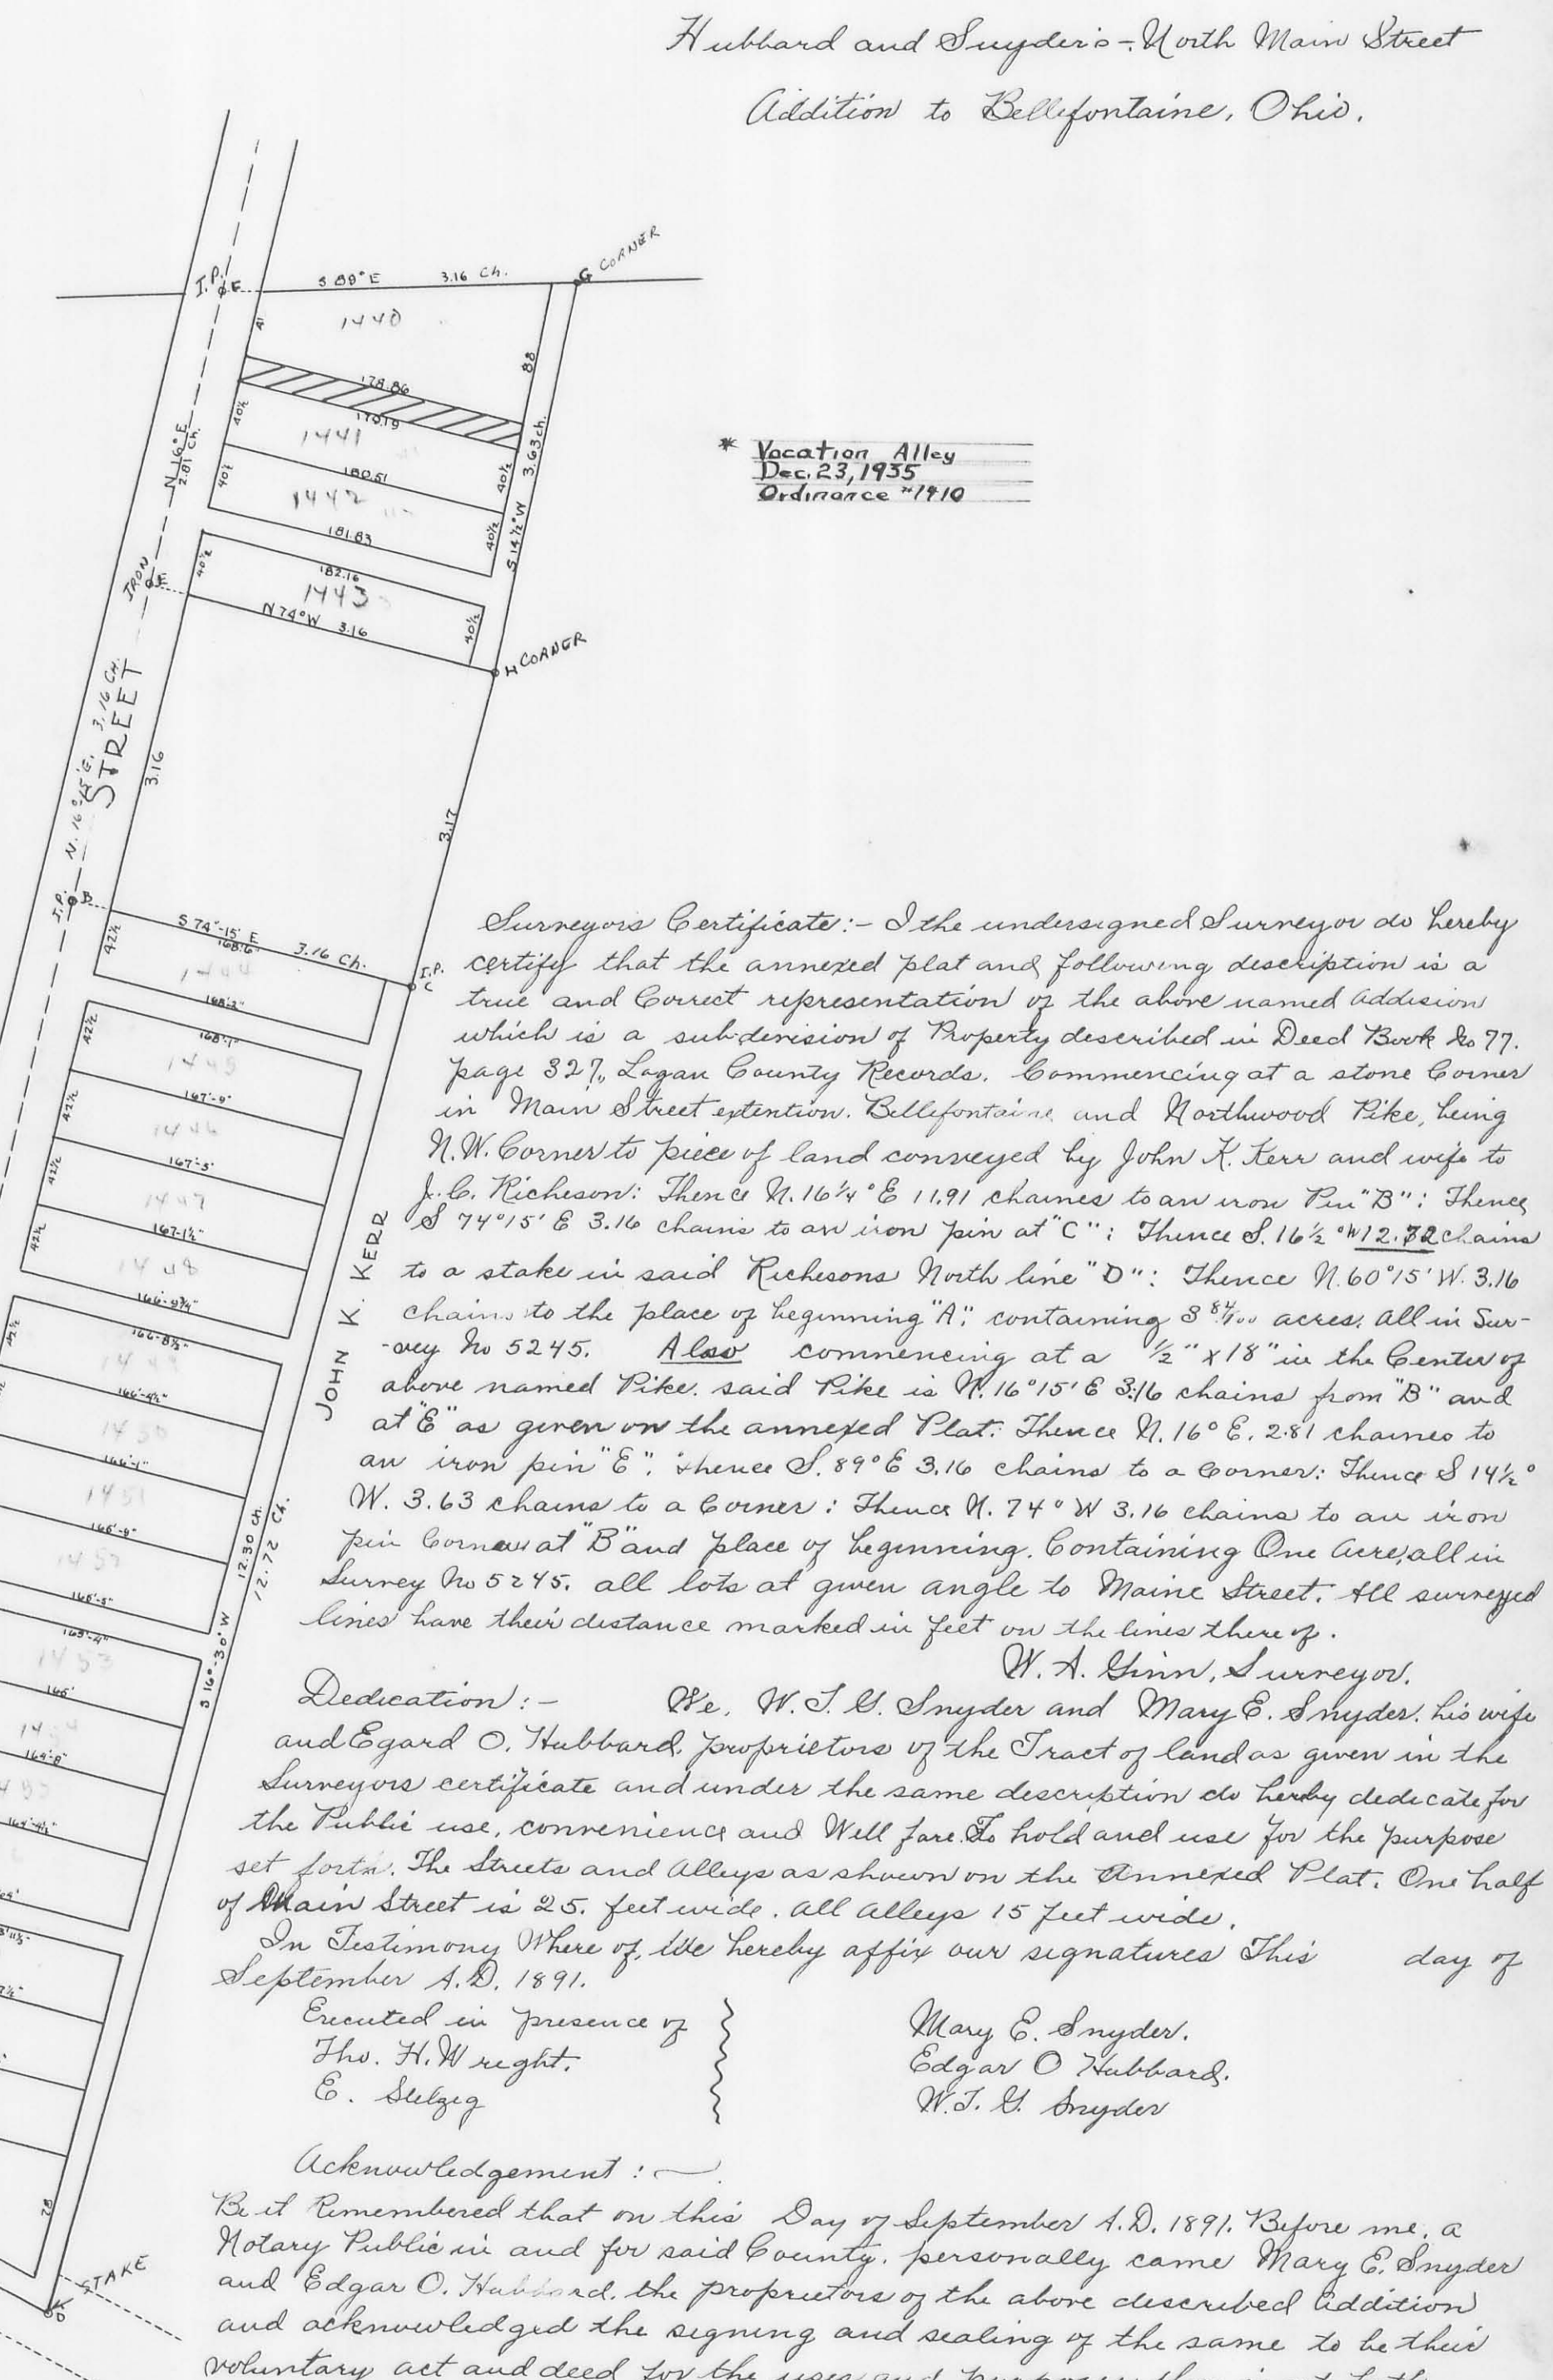 Hubbard and Snyder's - North Main Street
Addition to Bellefontaine, Ohio.
CORNER
G
S 89° E 3.16 Ch.
I.P.
1440
41
88
178.86
170.19
40½
1441
N 16° E
2.81 Ch.
3.63 ch.
S 14½° W
180.51
40½
40½
1442
181.83
40½
* Vacation Alley
Dec. 23, 1935
Ordinance #1410
IRON
E
40½
182.16
1443
N 74° W 3.16
40½
H CORNER
N. 16°15' E. 3.16 CH.
STREET
3.16
3.17
I.P. B
S 74°-15' E 3.16 Ch.
168'.6"
42½
1444
168'.2"
I.P.
C
42½
168'-1"
1445
167'-9"
42½
1446
167'-5"
42½
1447
167-1½"
42½
1448
166-9¾"
JOHN K. KERR
42½
166-8½"
166'-4½"
1450
166'-1"
1451
165'-9"
165'-5"
12.30 ch.
12.72 Ch.
S 16°-30' W
165'-4"
1453
165'
164'-8"
164'-4½"
STAKE
D
Surveyors Certificate:- I the undersigned Surveyor do hereby
certify that the annexed plat and following description is a
true and Correct representation of the above named addision
which is a sub-devision of Property described in Deed Book No 77.
page 327., Logan County Records. Commencing at a stone Corner
in Main Street extention. Bellefontaine and Northwood Pike, being
N.W. Corner to piece of land conveyed by John K. Kerr and wife to
J.C. Richeson: Thence N. 16¼° E 11.91 chaines to an iron Pin "B": Thence
S 74°15' E 3.16 chains to an iron pin at "C": Thence S. 16½° W 12.72 chains
to a stake in said Richesons North line "D": Thence N. 60°15' W. 3.16
chains to the place of beginning "A": containing 3 84/100 acres. all in Sur-
-vey No 5245. Also commencing at a ½" x 18" in the Center of
above named Pike. said Pike is N. 16°15' E 3.16 chains from "B" and
at "E" as given on the annexed Plat: Thence N. 16° E. 2.81 chaines to
an iron pin "E". thence S. 89° E 3.16 chains to a Corner: Thence S 14½°
W. 3.63 chains to a Corner: Thence N. 74° W 3.16 chains to an iron
pin Corner at "B" and place of beginning. Containing One Acre, all in
Survey No 5245. all lots at given angle to Maine Street. All surveyed
lines have their distance marked in feet on the lines there of.
W. A. Ginn, Surveyor.
Dedication:- We, W. T. G. Snyder and Mary E. Snyder. his wife
and Egard O. Hubbard, proprietors of the Tract of land as given in the
Surveyors certificate and under the same description do hereby dedecate for
the Public use, convenience and Well fare. To hold and use for the purpose
set forth. The Streets and Alleys as shown on the Annexed Plat. One half
of Main Street is 25. feet wide. all alleys 15 feet wide.
In Testimony Where of, We hereby affix our signatures This day of
September A.D. 1891.
Executed in presence of
Tho. H. Wright.
E.
Mary E. Snyder.
Edgar O Hubbard.
W.T. G. Snyder
Acknowledgement:-
Be it Remembered that on this Day of September A.D. 1891. Before me, a
Notary Public in and for said County. personally came Mary E. Snyder
and Edgar O. Hubbard. the proprietors of the above described addition
and acknowledged the signing and sealing of the same to be their
voluntary act and deed for the uses and